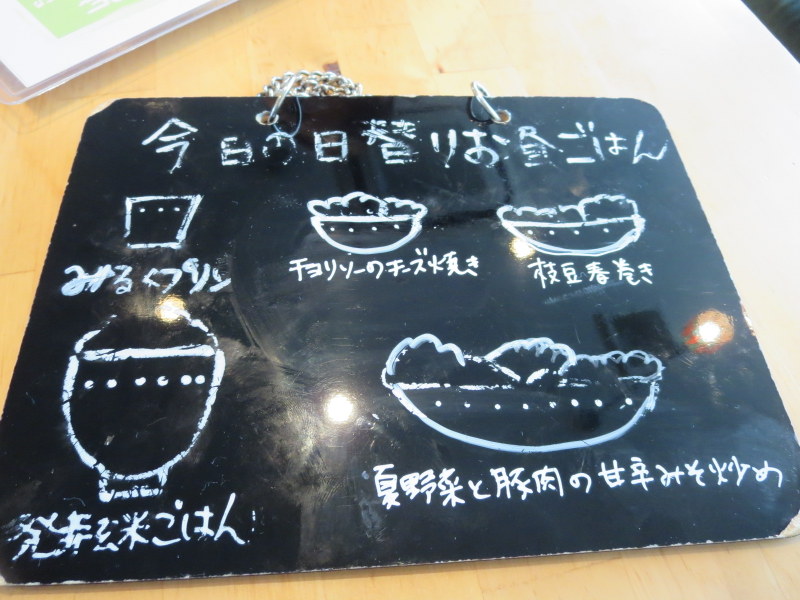 今日の日替りお昼ごはん
みるくプリン
チョリソーのチーズ焼き
枝豆春巻き
発芽玄米ごはん
夏野菜と豚肉の甘辛みそ炒め